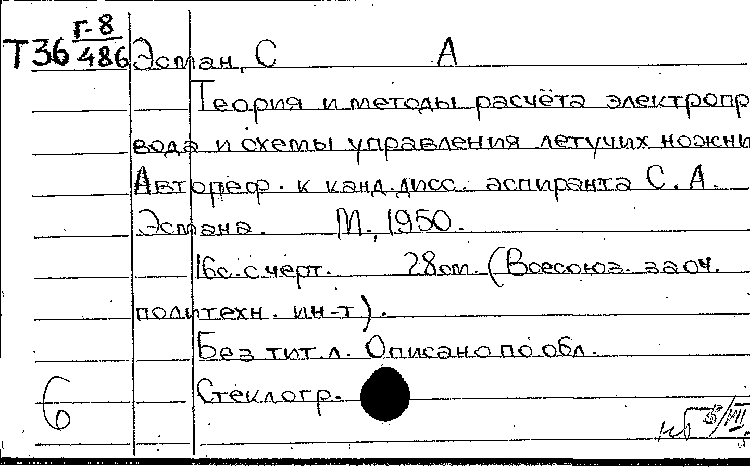 Т36 Г-8/486 Эстан, С А
Теория и методы расчёта электропр
вода и схемы управления летучих ножни
Автореф. к канд. дисс. аспиранта С. А.
Эстана. М., 1950.
16с. с черт. 28см. (Всесоюз. заоч.
политехн. ин-т).
Без тит. л. Описано по обл.
Стеклогр.
6